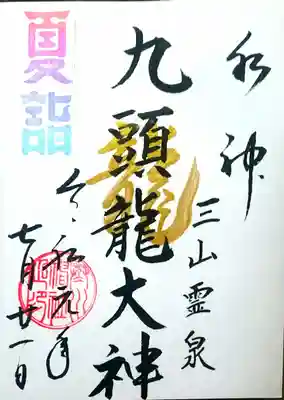 水神
三山霊泉
九頭龍大神
夏詣
令和元年
七月廿一日